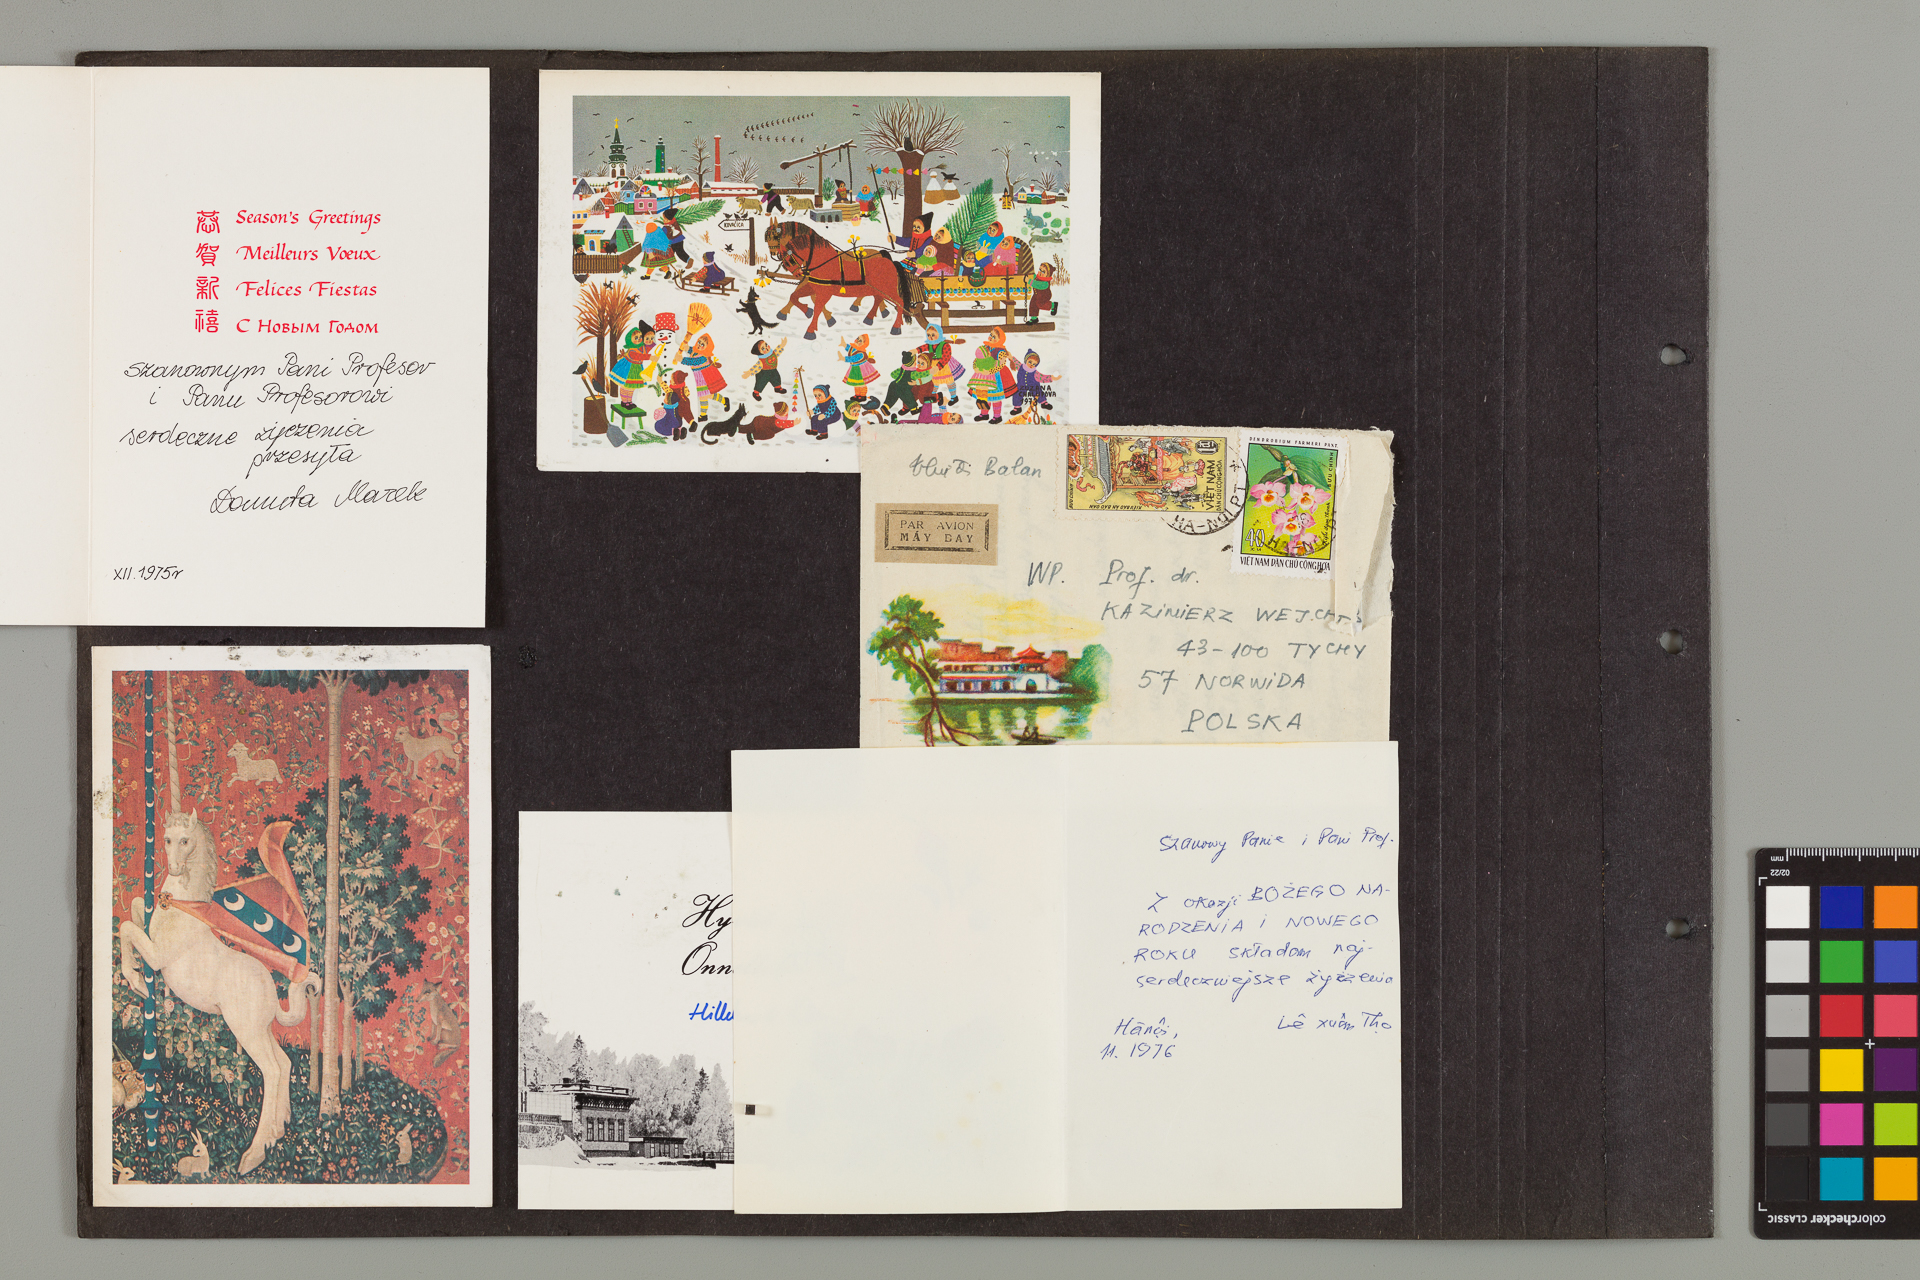 恭賀新禧
Season's Greetings
Meilleurs Vœux
Felices Fiestas
С Новым Годом
Szanownym Pani Profesor
i Panu Profesorowi
serdeczne życzenia
przesyła
Danuta Marek
XII.1975r
KOVAČICA
Balan
PAR AVION
MÁY BAY
VIỆT NAM
DÂN CHỦ CỘNG HÒA
HA-NOI
DENDROBIUM FARMERI PAXT.
BƯU CHÍNH
40
XU
VIỆT NAM DÂN CHỦ CỘNG HÒA
WP. Prof. dr.
KAZIMIERZ
43-100 TYCHY
57 NORWIDA
POLSKA
Hy
Onn
Hill
Szanowy Panie i Pani Prof.
Z okazji BOŻEGO NA-
RODZENIA i NOWEGO
ROKU składam naj-
serdeczniejsze życzenia
Hànội, Lê Xuân Thọ
11. 1976
mm
02/22
colorchecker CLASSIC